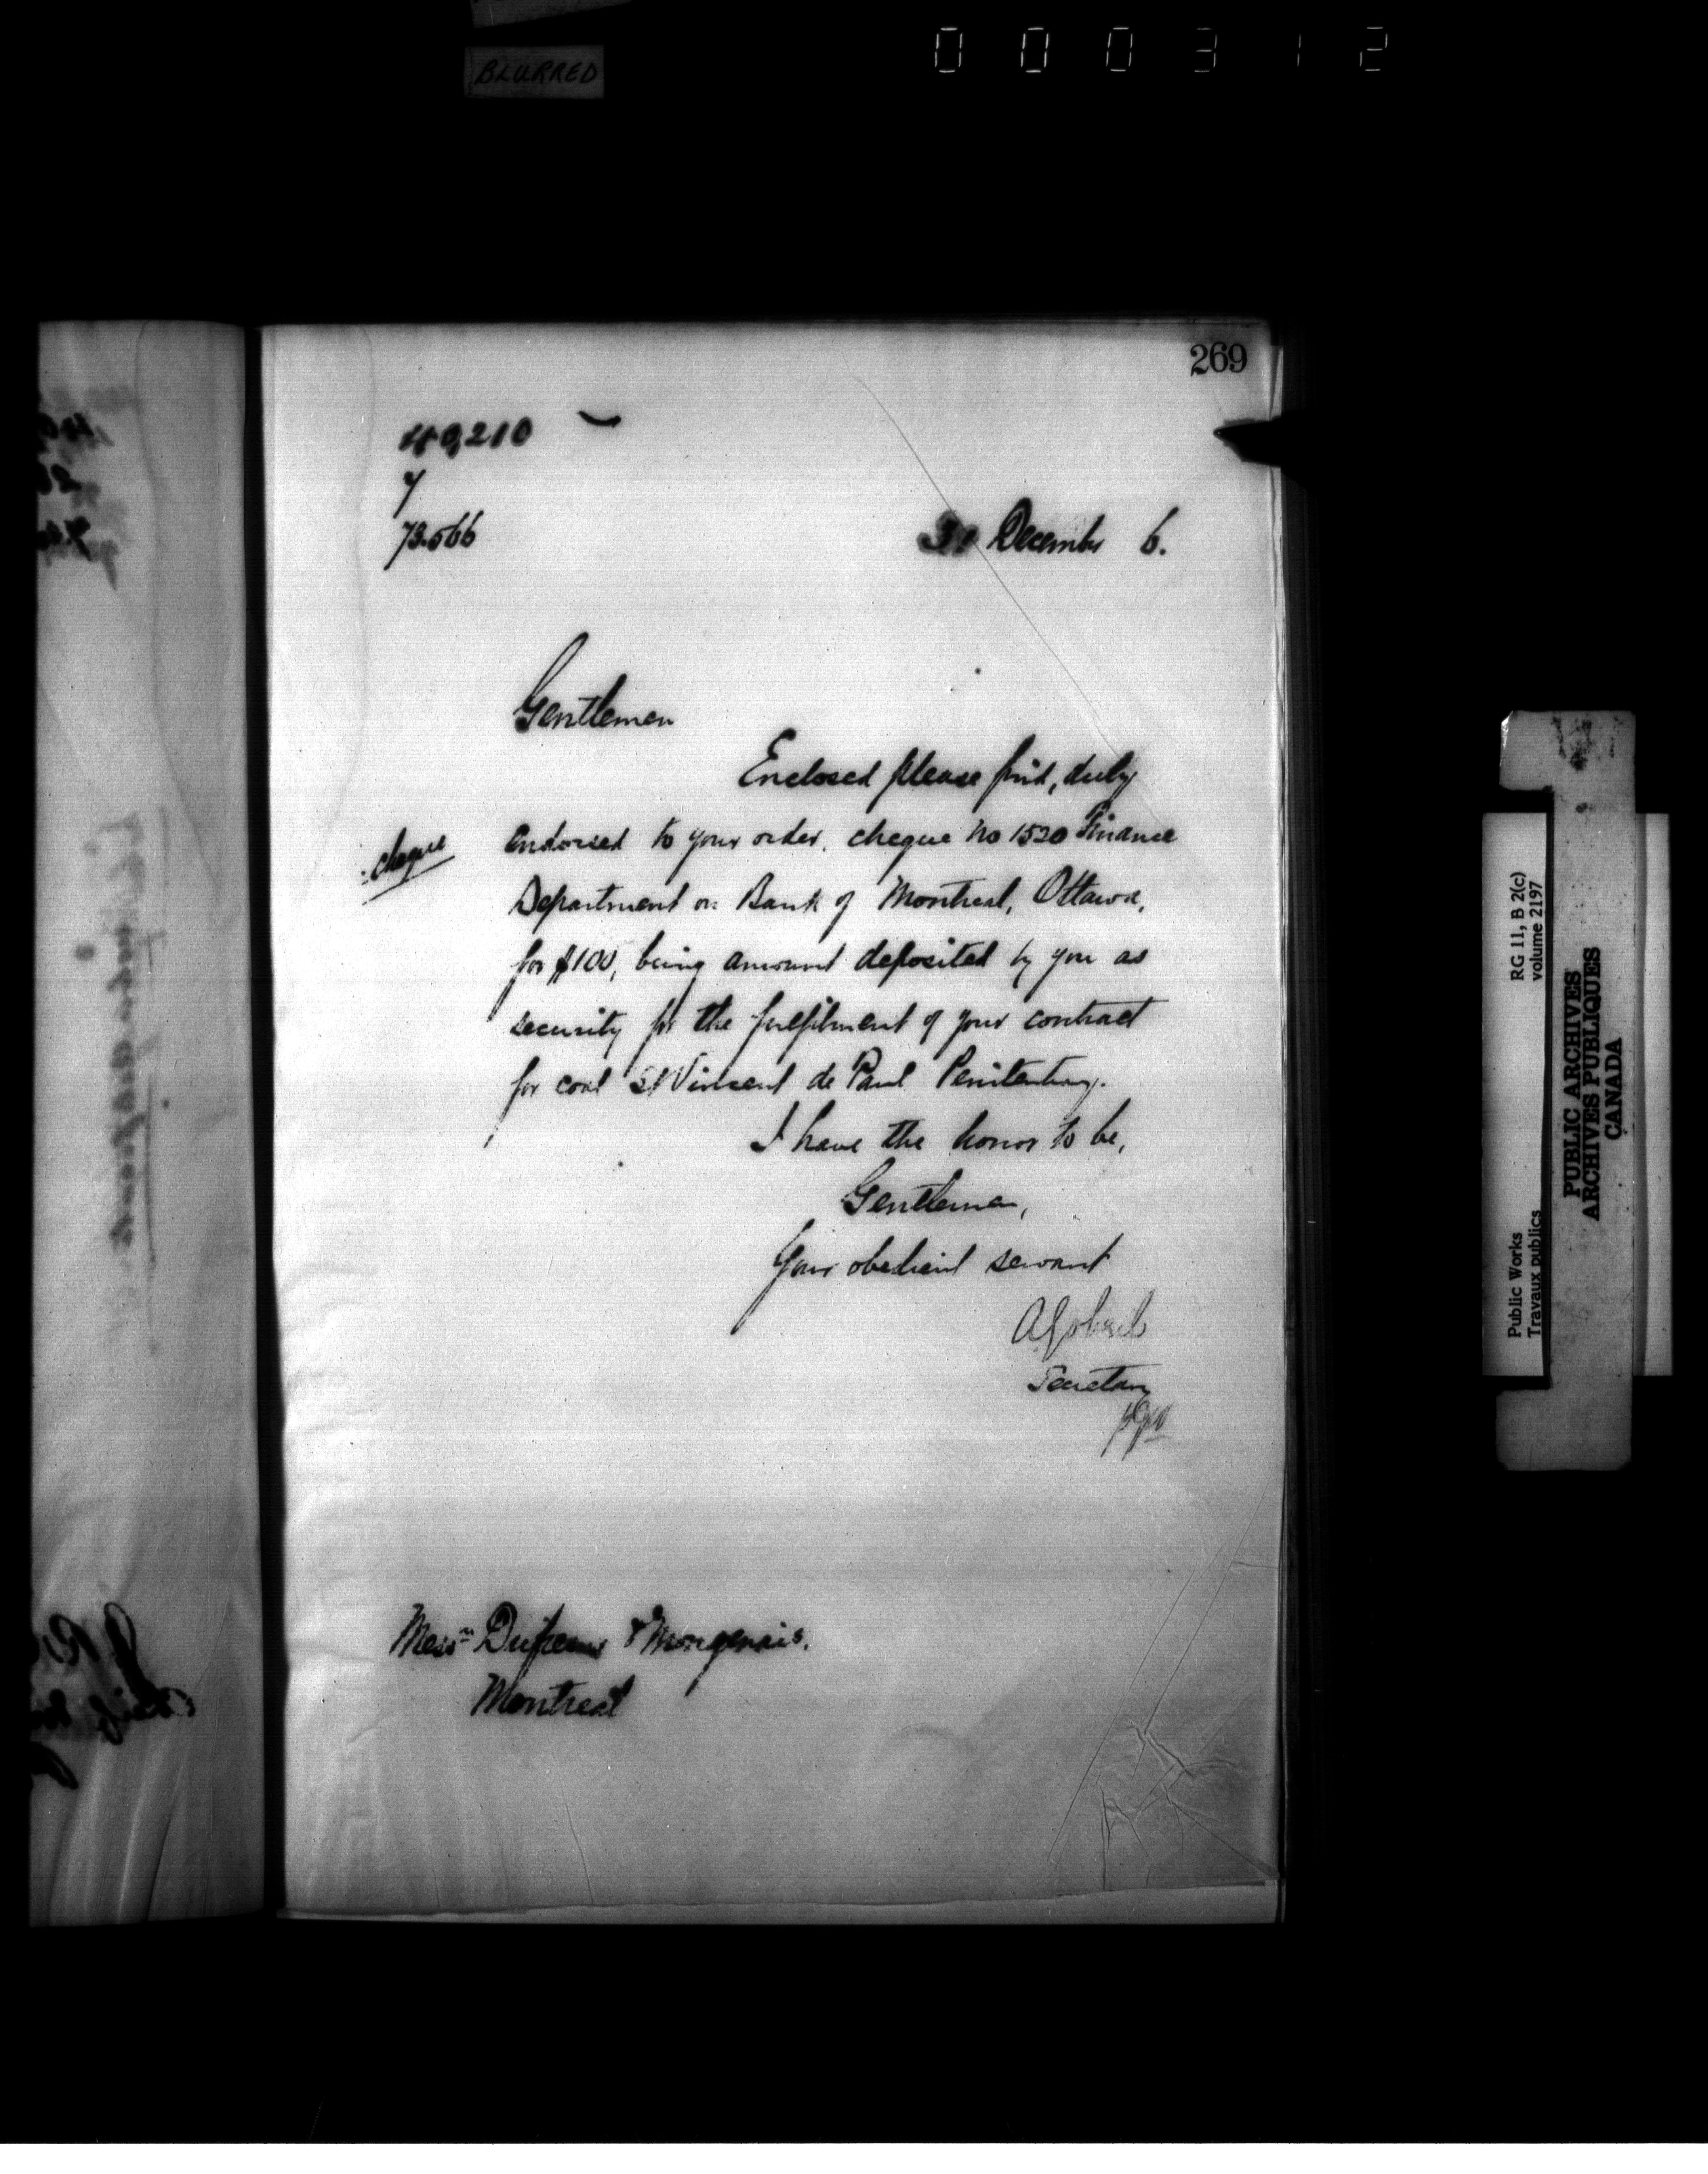 BLURRED
000312
269
40,210
y
73.566
31 December 6.
Gentlemen
Enclosed please find, duly
cheque
endorsed to your order, cheque no 1520 Finance
Department on Bank of Montreal, Ottawa,
for $100, being amount deposited by you as
security for the fulfilment of your contract
for coal St Vincent de Paul Penitentiary.
I have the honor to be,
Gentlemen,
Your obedient servant
A Gobeil
Secretary
Messrs & Mongenais.
Montreal
RG 11, B 2(c)
volume 2197
Public Works
Travaux publics
PUBLIC ARCHIVES
ARCHIVES PUBLIQUES
CANADA